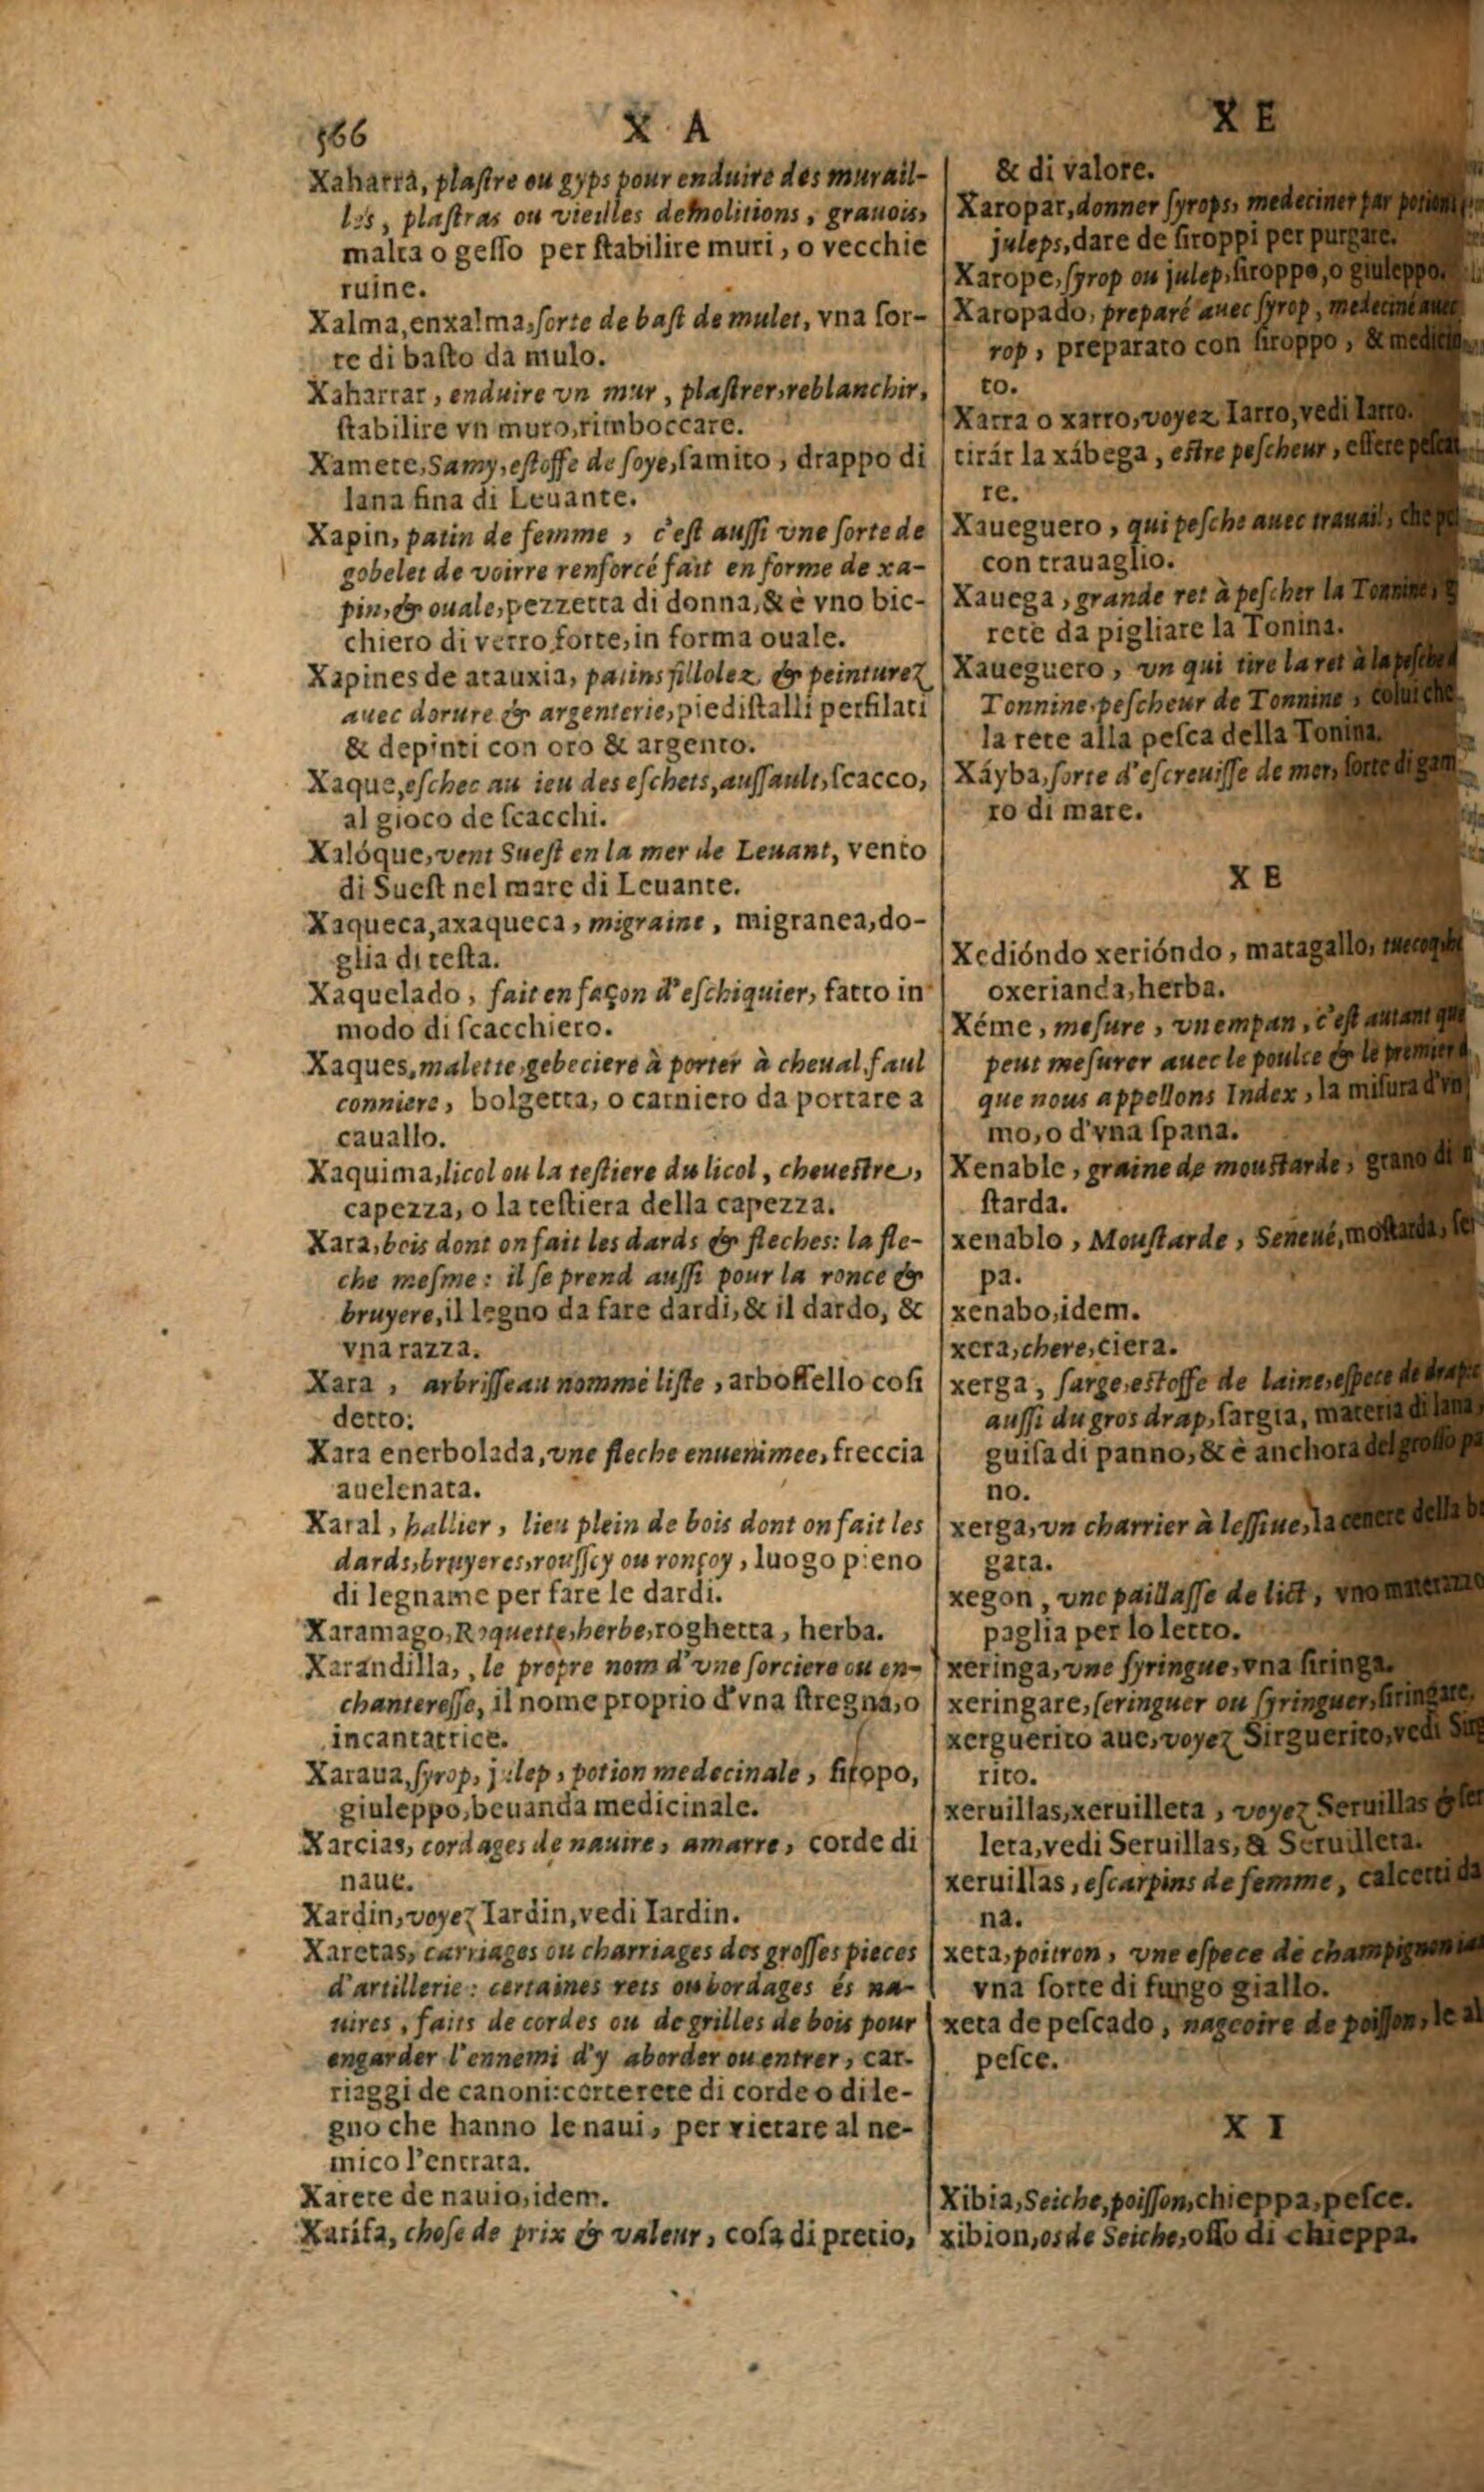 566 X A
Xaharra, plaſtre ou gyps pour enduire des murail-
les, plaſtras ou vieilles demolitions, grauois,
malta o geſſo per ſtabilire muri, o vecchie
ruine.
Xalma, enxalma, ſorte de baſt de mulet, vna ſor-
te di baſto da mulo.
Xaharrar, enduire vn mur, plaſtrer, reblanchir,
ſtabilire vn muro, rimboccare.
Xamete, Samy, eſtoffe de ſoye, ſamito, drappo di
lana fina di Leuante.
Xapin, patin de femme, c'eſt auſſi vne ſorte de
gobelet de voirre renforcé fait en forme de xa-
pin, & ouale, pezzetta di donna, & è vno bic-
chiero di vetro forte, in forma ouale.
Xapines de atauxia, patins fillolez & peinturez
auec dorure & argenterie, piediſtalli perfilati
& depinti con oro & argento.
Xaque, eſchec au ieu des eſchets, auſſault, ſcacco,
al gioco de ſcacchi.
Xalóque, vent Sueſt en la mer de Leuant, vento
di Sueſt nel mare di Leuante.
Xaqueca, axaqueca, migraine, migranea, do-
glia di teſta.
Xaquelado, fait en façon d'eſchiquier, fatto in
modo di ſcacchiero.
Xaques, malette, gebeciere à porter à cheual, faul
conniere, bolgetta, o carniero da portare a
cauallo.
Xaquima, licol ou la teſtiere du licol, cheueſtre,
capezza, o la teſtiera della capezza.
Xara, bois dont on fait les dards & fleches: la fle-
che meſme: il ſe prend auſſi pour la ronce &
bruyere, il legno da fare dardi, & il dardo, &
vna razza.
Xara, arbriſſeau nommé liſte, arboſſello coſi
detto:
Xara enerbolada, vne fleche enuenimee, freccia
auelenata.
Xaral, hallier, lieu plein de bois dont on fait les
dards, bruyeres, rouſſey ou ronçoy, luogo pieno
di legname per fare le dardi.
Xaramago, Roquette, herbe, roghetta, herba.
Xarandilla,, le propre nom d'vne ſorciere ou en-
chantereſſe, il nome proprio d'vna ſtregna, o
incantatrice.
Xaraua, ſyrop, julep, potion medecinale, ſiropo,
giuleppo, beuanda medicinale.
Xarcias, cordages de nauire, amarre, corde di
naue.
Xardin, voyez Iardin, vedi Iardin.
Xaretas, carriages ou charriages des groſſes pieces
d'artillerie: certaines rets ou bordages és na-
uires, faits de cordes ou de grilles de bois pour
engarder l'ennemi d'y aborder ou entrer, car-
riaggi de canoni: certe rete di corde o di le-
gno che hanno le naui, per vietare al ne-
mico l'entrata.
Xarete de nauio, idem.
Xarifa, choſe de prix & valeur, coſa di pretio,
X E
& di valore.
Xaropar, donner ſyrops, medeciner par potions
juleps, dare de ſiroppi per purgare.
Xarope, ſyrop ou julep, ſiroppo, o giuleppo.
Xaropado, preparé auec ſyrop, mediciné auec
rop, preparato con ſiroppo, &
to.
Xarra o xarro, voyez Iarro, vedi Iarro.
tirár la xábega, eſtre peſcheur, eſſere
re.
Xaueguero, qui peſche auec trauail, che
con trauaglio.
Xauega, grande ret à peſcher la Tonnine,
rete da pigliare la Tonina.
Xaueguero, vn qui tire la ret à la
Tonnine, peſcheur de Tonnine, colui che
la rete alla peſca della Tonina.
Xáyba, ſorte d'eſcreuiſſe de mer, ſorte di gam
ro di mare.
X E
Xedióndo xerióndo, matagallo,
oxerianda, herba.
Xéme, meſure, vn empan, c'eſt autant que
peut meſurer auec le poulce & le premier
que nous appellons Index, la miſura d'vn
mo, o d'vna ſpana.
Xenable, graine de mouſtarde, grano di
ſtarda.
xenablo, Mouſtarde, Seneué, moſtarda,
pa.
xenabo, idem.
xera, chere, ciera.
xerga, ſarge, eſtoffe de laine, eſpece de
auſſi du gros drap, ſargia, materia di lana,
guiſa di panno, & è anchora del groſſo pa
no.
xerga, vn charrier à leſſiue, la cenere della
gata.
xegon, vne paillaſſe de lict, vno
paglia per lo letto.
xeringa, vne ſyringue, vna ſiringa.
xeringare, ſeringuer ou ſyringuer, ſiringare,
xerguerito aue, voyez Sirguerito, vedi
rito.
xeruillas, xeruilleta, voyez Seruillas &
leta, vedi Seruillas, & Seruilleta.
xeruillas, eſcarpins de femme, calcetti da
na.
xeta, poitron, vne eſpece de champignon
vna ſorte di fungo giallo.
xeta de peſcado, nageoire de poiſſon, le
peſce.
X I
Xibia, Seiche, poiſſon, chieppa, peſce.
xibion, os de Seiche, oſſo di chieppa.